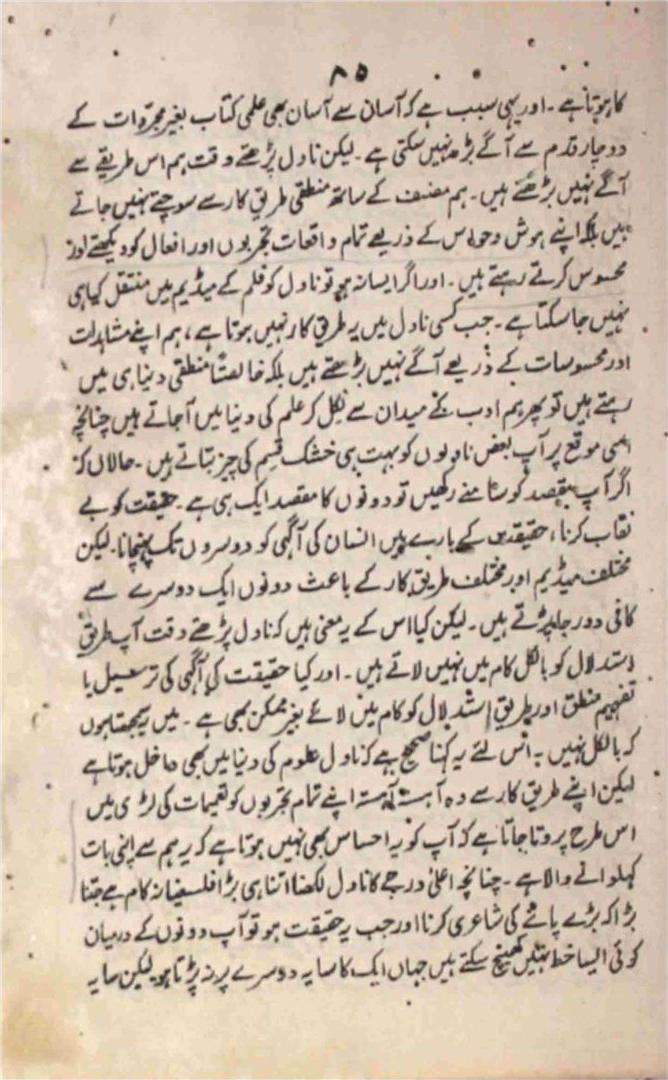 ۸۵
کار ہوتا ہے۔ اور یہی سبب ہے کہ آسان سے آسان بھی علمی کتاب بغیر مجردات کے
دو چار قدم سے آگے بڑھ نہیں سکتی ہے۔ لیکن ناول پڑھتے وقت ہم اس طریقے سے
آگے نہیں بڑھتے ہیں۔ ہم مصنف کے ساتھ منطقی طریق کار سے سوچتے نہیں جاتے
ہیں بلکہ اپنے ہوش و حواس کے ذریعے تمام واقعات تجربوں اور افعال کو دیکھتے اور
محسوس کرتے رہتے ہیں۔ اور اگر ایسا نہ ہو تو ناول کو فلم کے میڈیم میں منتقل کیا ہی
نہیں جا سکتا ہے۔ جب کسی ناول میں یہ طریق کار نہیں ہوتا ہے، ہم اپنے مشاہدات
اور محسوسات کے ذریعے آگے نہیں بڑھتے ہیں بلکہ خالصتاً منطقی دنیا ہی میں
رہتے ہیں تو پھر ہم ادب کے میدان سے نکل کر علم کی دنیا میں آ جاتے ہیں چنانچہ
اسی موقع پر آپ بعض ناولوں کو بہت ہی خشک قسم کی چیز بتاتے ہیں۔ حالاں کہ
اگر آپ مقصد کو سامنے رکھیں تو دونوں کا مقصد ایک ہی ہے۔ حقیقت کو بے
نقاب کرنا، حقیقت کے بارے میں انسان کی آگہی کو دوسروں تک پہنچانا۔ لیکن
مختلف میڈیم اور مختلف طریق کار کے باعث دونوں ایک دوسرے سے
کافی دور جا پڑتے ہیں۔ لیکن کیا اس کے یہ معنی ہیں کہ ناول پڑھتے وقت آپ طریق
استدلال کو بالکل کام میں نہیں لاتے ہیں۔ اور کیا حقیقت کی آگہی کی ترسیل یا
تفہیم منطق اور طریق استدلال کو کام میں لائے بغیر ممکن بھی ہے۔ میں سمجھتا ہوں
کہ بالکل نہیں۔ اس لئے یہ کہنا صحیح ہے کہ ناول علوم کی دنیا میں بھی داخل ہوتا ہے
لیکن اپنے طریق کار سے وہ آہستہ آہستہ اپنے تمام تجربوں کو تعمیمات کی لڑی میں
اس طرح پروتا جاتا ہے کہ آپ کو یہ احساس بھی نہیں ہوتا ہے کہ یہ ہم سے اپنی بات
کہلوانے والا ہے۔ چنانچہ اعلیٰ درجے کا ناول لکھنا اتنا ہی بڑا فلسفیانہ کام ہے جتنا
بڑا کہ بڑے پائے کی شاعری کرنا اور جب یہ حقیقت ہو تو آپ دونوں کے درمیان
کوئی ایسا خط نہیں کھینچ سکتے ہیں جہاں ایک کا سایہ دوسرے پر نہ پڑتا ہو لیکن سایہ